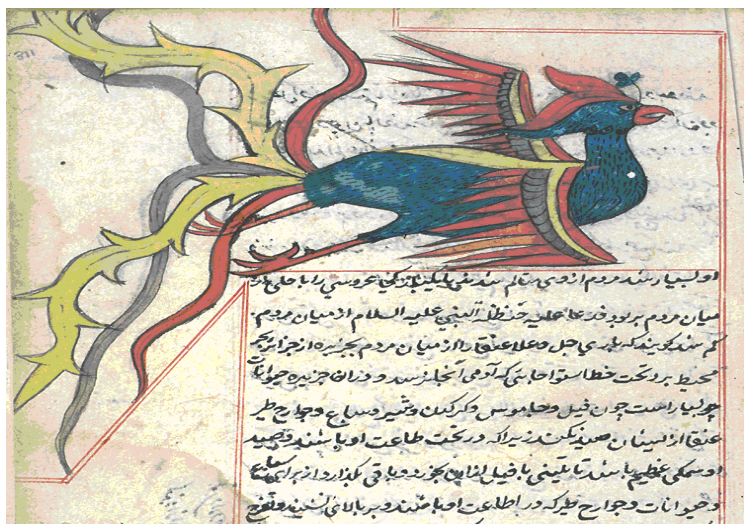 او بسیار شد مردم از وی متالم شدند
میان مردم بربود فدعا علیه حنظلة النبی علیه السلام از میان مردم
کم شد گویند که باری جل و علا عنقا را از میان مردم بجزیره از جزایر بحر
محیط برد تحت خط استوا جایی که آدمی آنجا نرسد و در آن جزیره حیوانات
بسیار است چون فیل و جاموس و کرکدن و شیر و سباع و جوارح طیر
عنقا از ایشان صید نکند زیرا که در تحت طاعت او باشند و صید
او سمکی عظیم باشد تا یا فیل از این بخورد و باقی بگذارد از برای سباع
و حیوانات و جوارح طیر که در اطاعت او باشند و بر بالای نشیند و تفرج